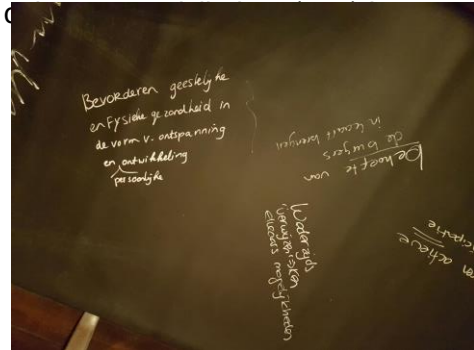 Bevorderen geestelijke
en Fysieke gezondheid in
de vorm v. ontspanning
en ontwikkeling
persoonlijke
Behoefte van
de burgers
in kaart brengen
Waterzijds
elkaars mogelijkheden
actieve